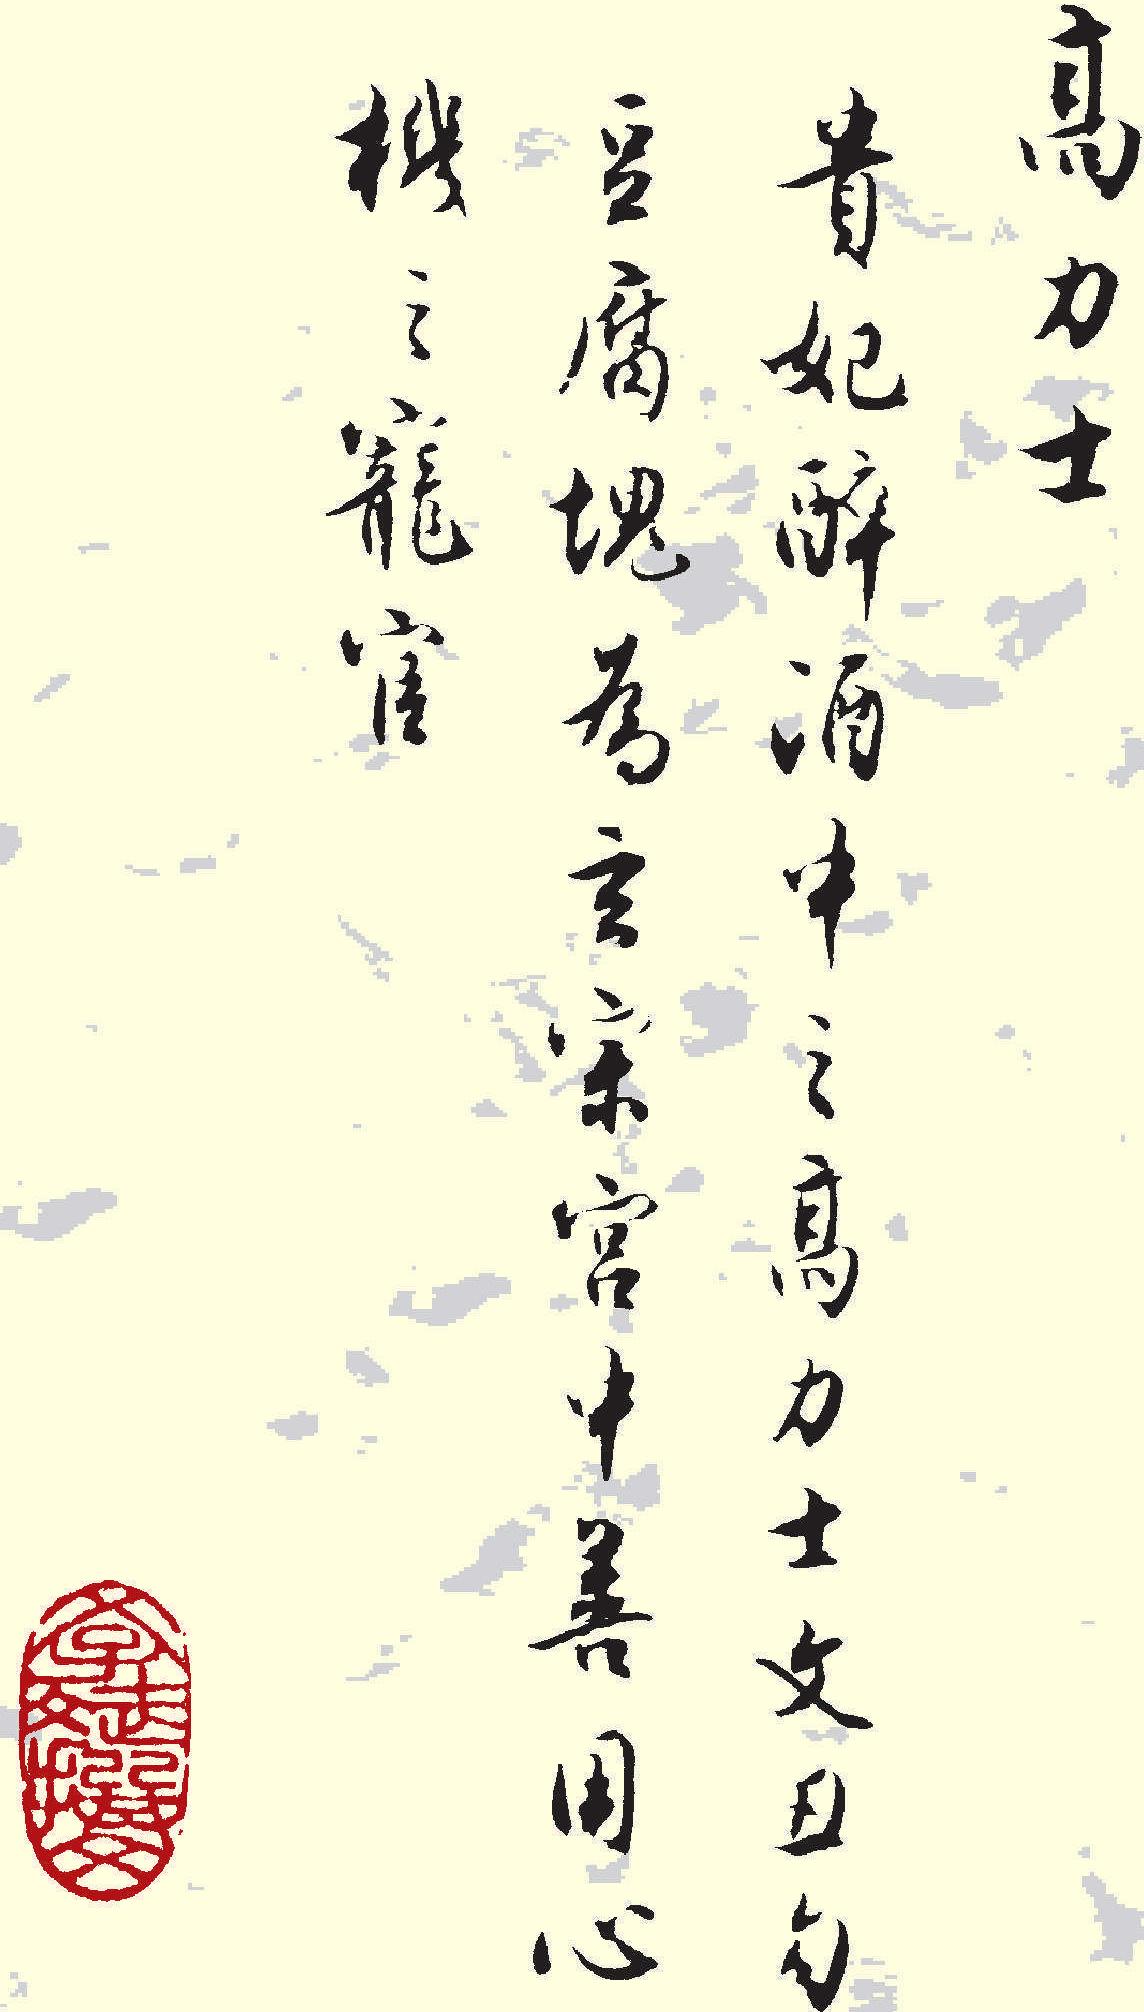 高力士
貴妃醉酒中之高力士文丑勾
豆腐塊為玄宗宮中善用心
機之寵宦